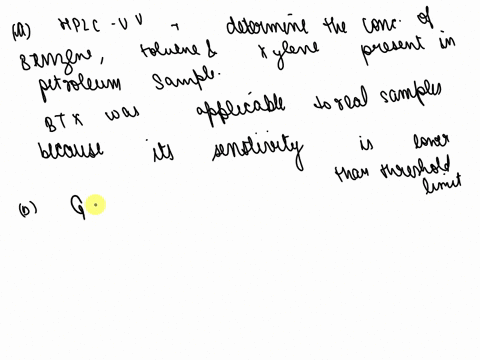 (a) HPLC-UV → determine the conc. of
Benzene, toluene & xylene present in
petroleum sample.
BTX was applicable to real samples
because its sensitivity is lower
than threshold
limit
(b) G